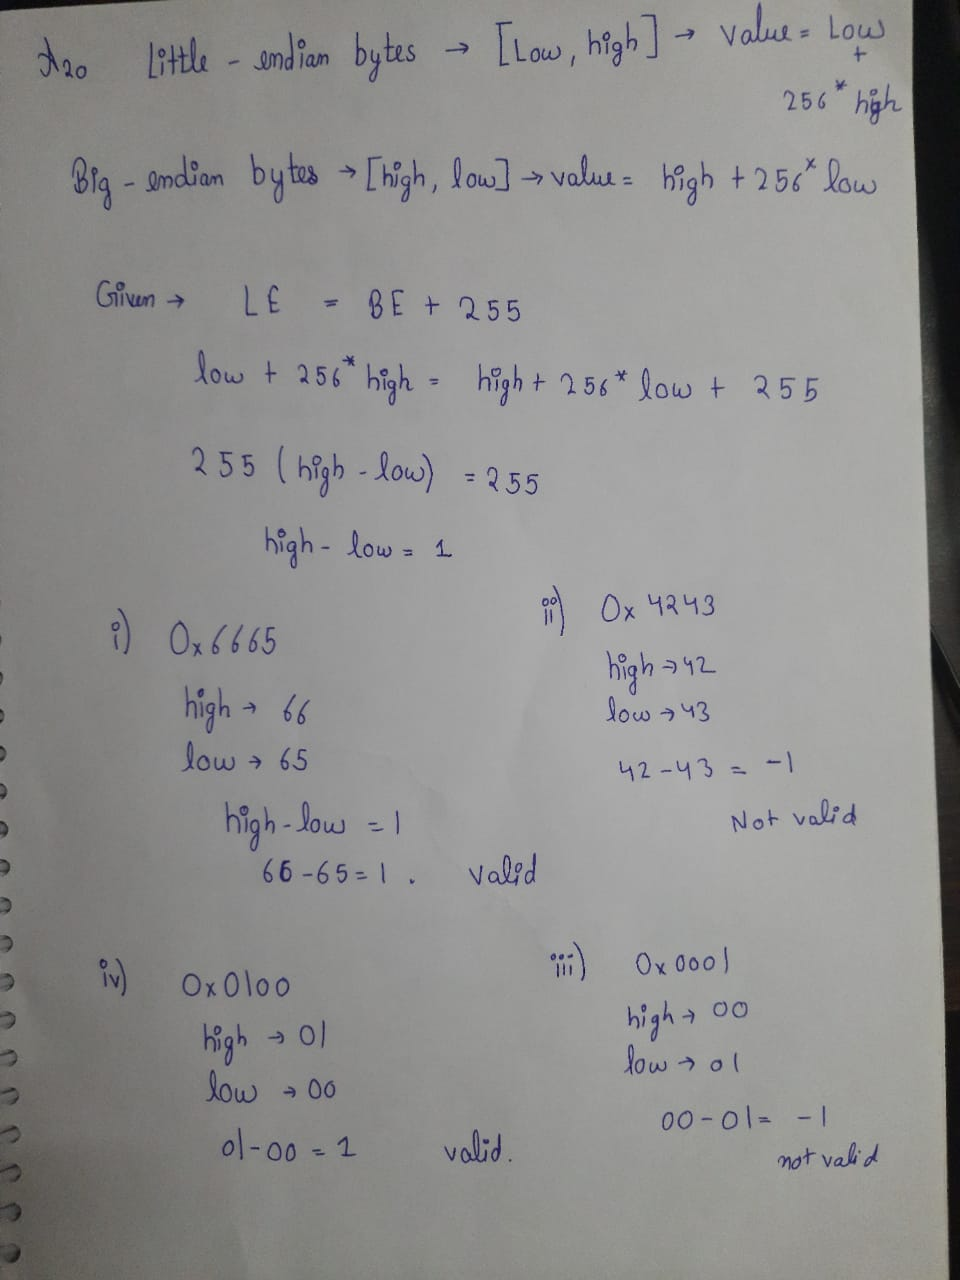 A20 Little - endian bytes → [Low, high] → value = Low
+
256 * high
Big - endian bytes → [high, low] → value = high + 256 * low
Given → LE = BE + 255
low + 256 * high = high + 256 * low + 255
255 (high - low) = 255
high - low = 1
i) 0x6665
high → 66
low → 65
high - low = 1
66 - 65 = 1 . valid
ii) 0x 4243
high → 42
low → 43
42 - 43 = -1
Not valid
iv) 0x0100
high → 01
low → 00
01 - 00 = 1 valid.
iii) 0x 0001
high → 00
low → 01
00 - 01 = -1
not valid